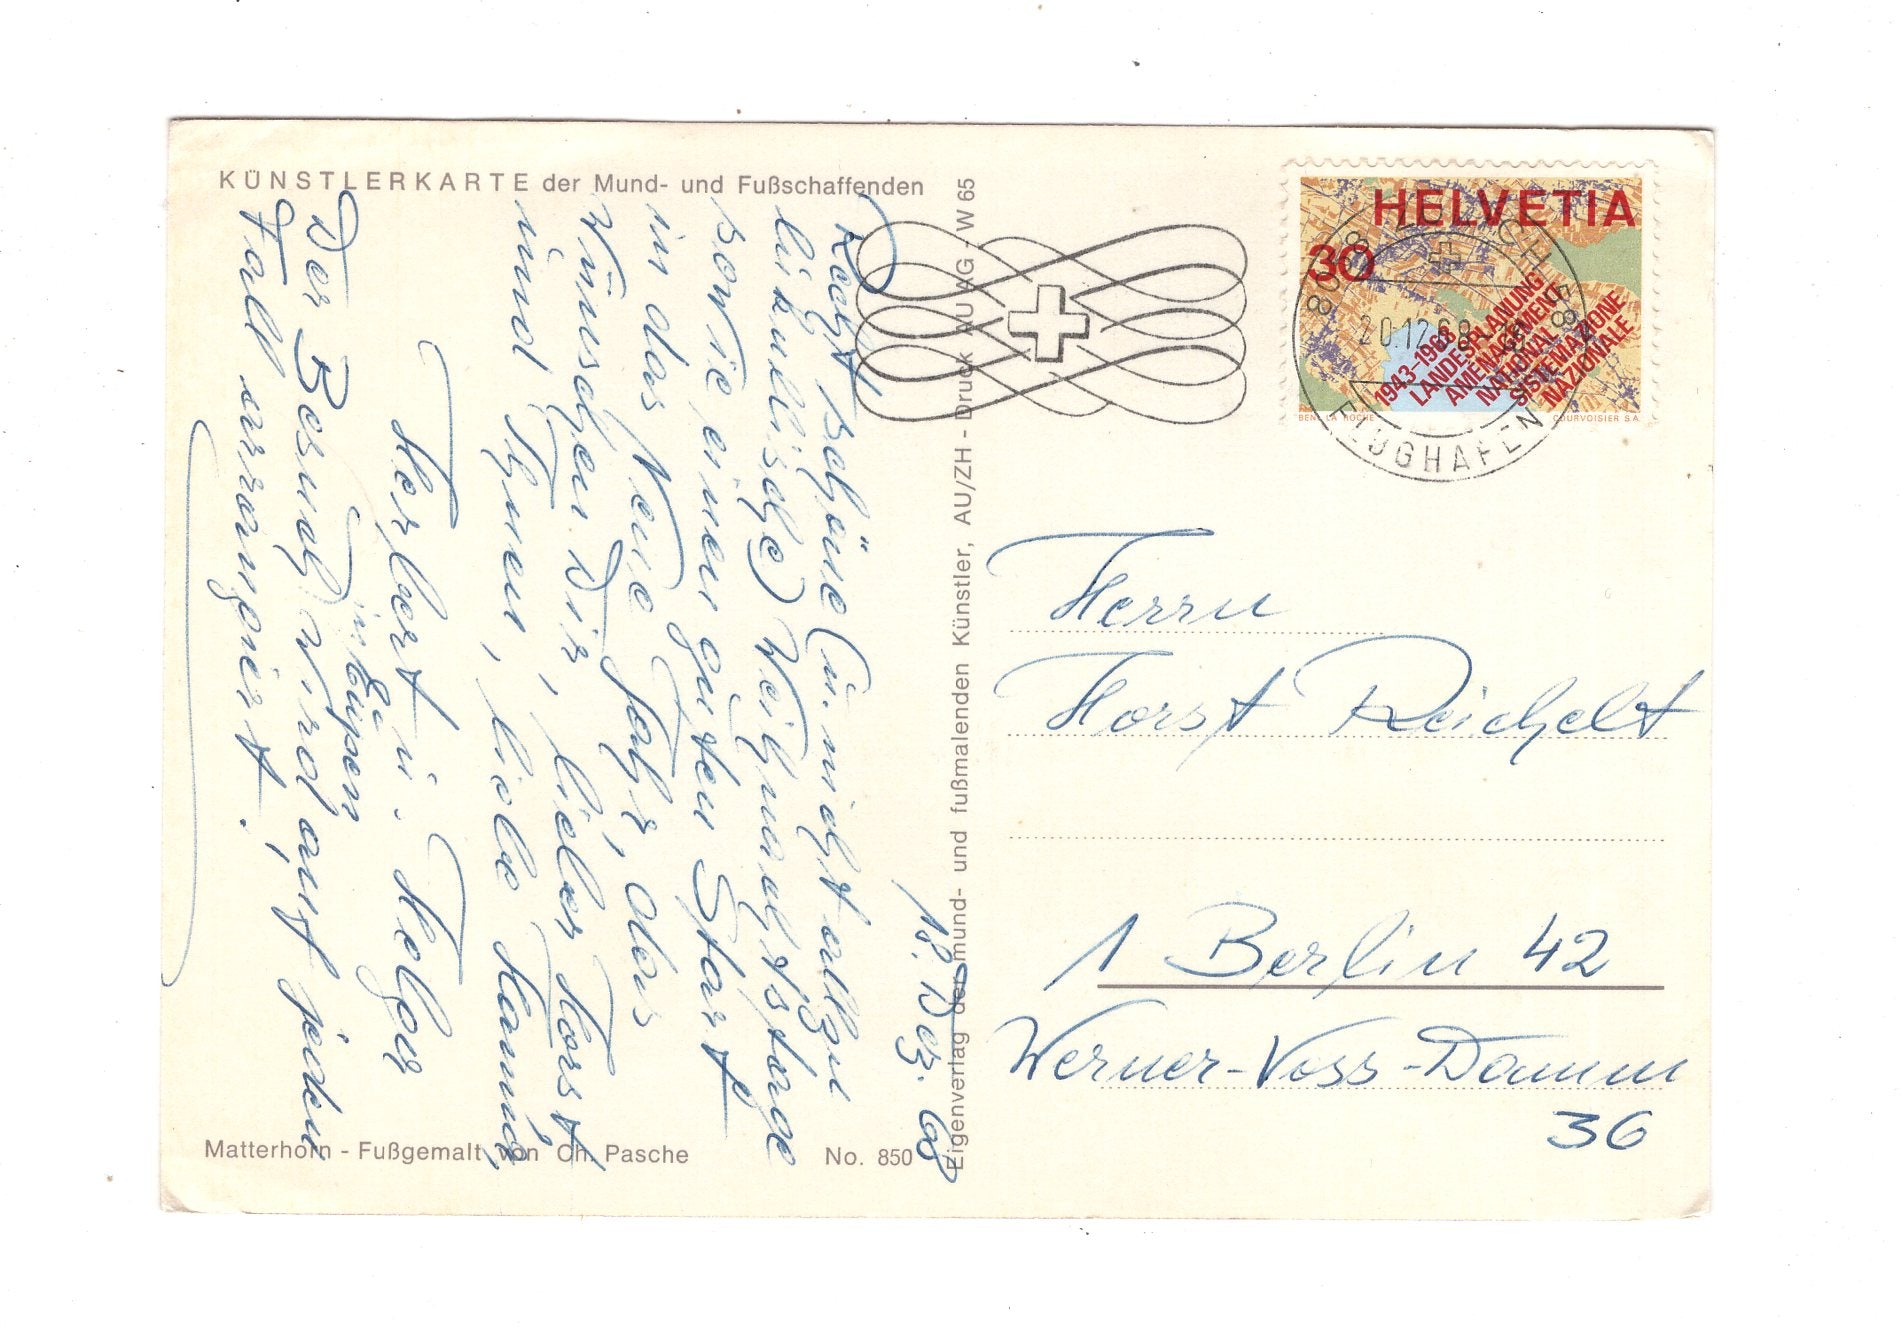 KÜNSTLERKARTE der Mund- und Fußschaffenden
18. Dez. 68
Recht schöne (u. nicht allzu
"bikullische) Weihnachtstage
sowie einen guten Start
in das Neue Jahr, das
wünschen Dir, lieber Horst,
und Ihnen, liebe Hanna,
Herbert u. Helga
in Eupen
Der Besuch wird auf jeden
Fall arrangiert!
Matterhorn - Fußgemalt von Ch. Pasche
No. 850
Eigenverlag der mund- und fußmalenden Künstler, AU/ZH - Druck AU AG - W 65
HELVETIA
30
1943-1968
LANDESPLANUNG
AMENAGEMENT
NATIONAL
SISTEMAZIONE
NAZIONALE
BENI LA ROCHE
COURVOISIER S.A.
20.12.68
FLUGHAFEN
Herrn
Horst Reichelt
1 Berlin 42
Werner-Voss-Damm
36